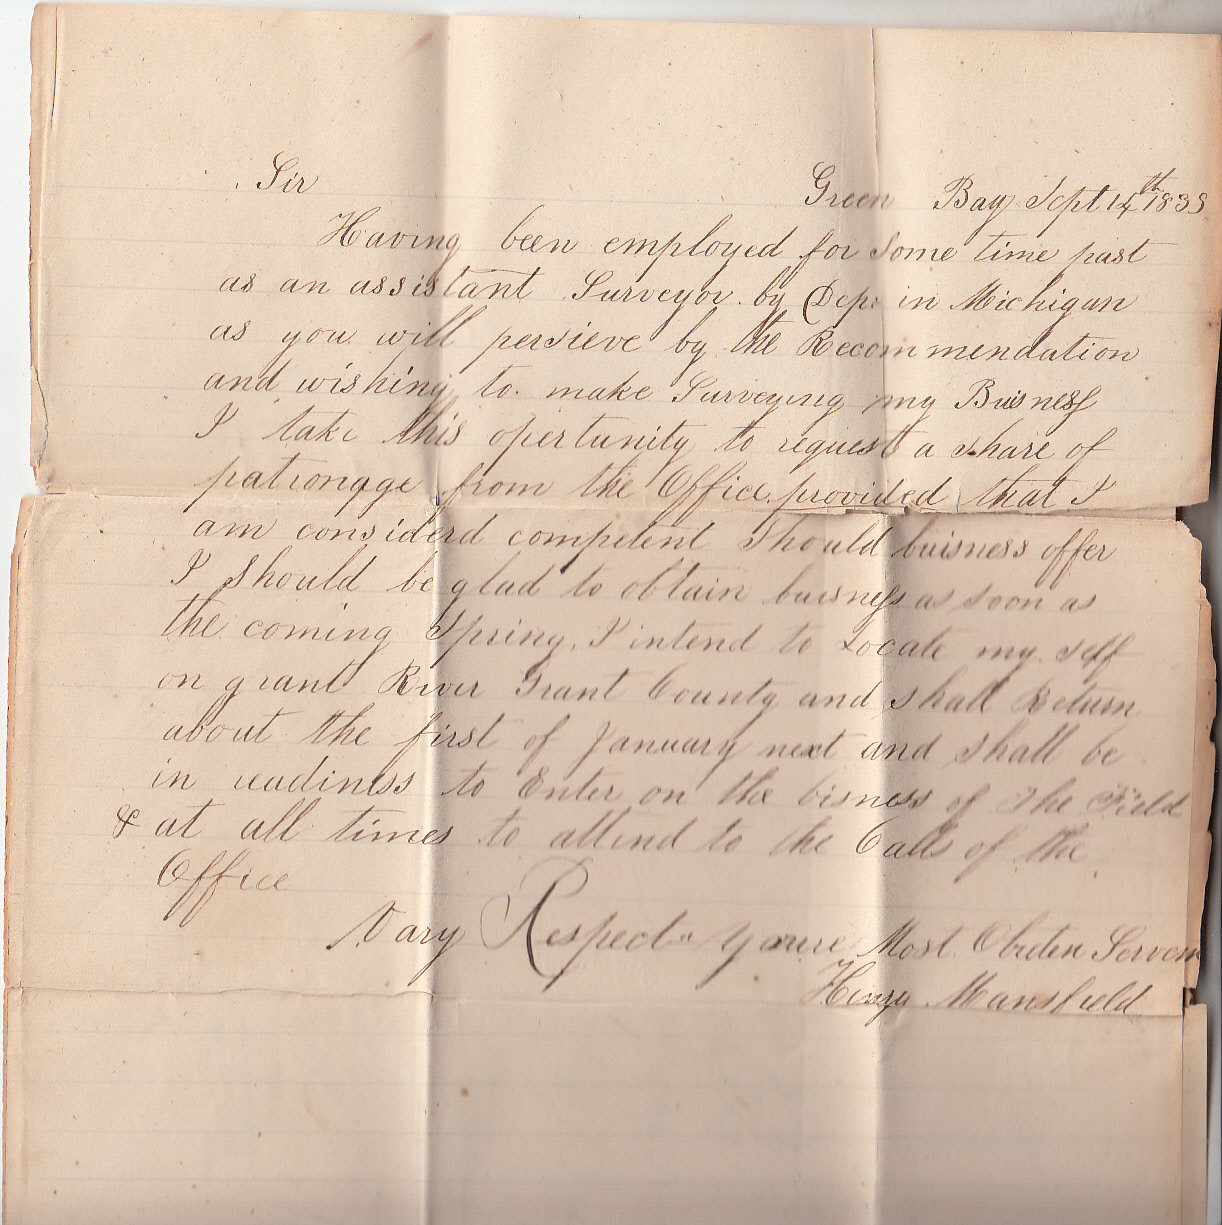 Sir
Green Bay Sept 14th 1838
Having been employed for Some time past
as an assistant Surveyor by Dep: in Michigan
as you will persieve by the Recommendation
and wishing to make Surveying my Buisness
I take this opertunity to request a share of
patronage from the Office provided that I
am considerd competent Should buisness offer
I Should be glad to obtain buisness as soon as
the coming Spring. I intend to Locate my self
on grant River Grant County and shall Return
about the first of January next and shall be
in readiness to Enter on the bisness of the Field
& at all times to attend to the Calls of the
Office
Vary Respect Most Obeden Serven
Henry Mansfield